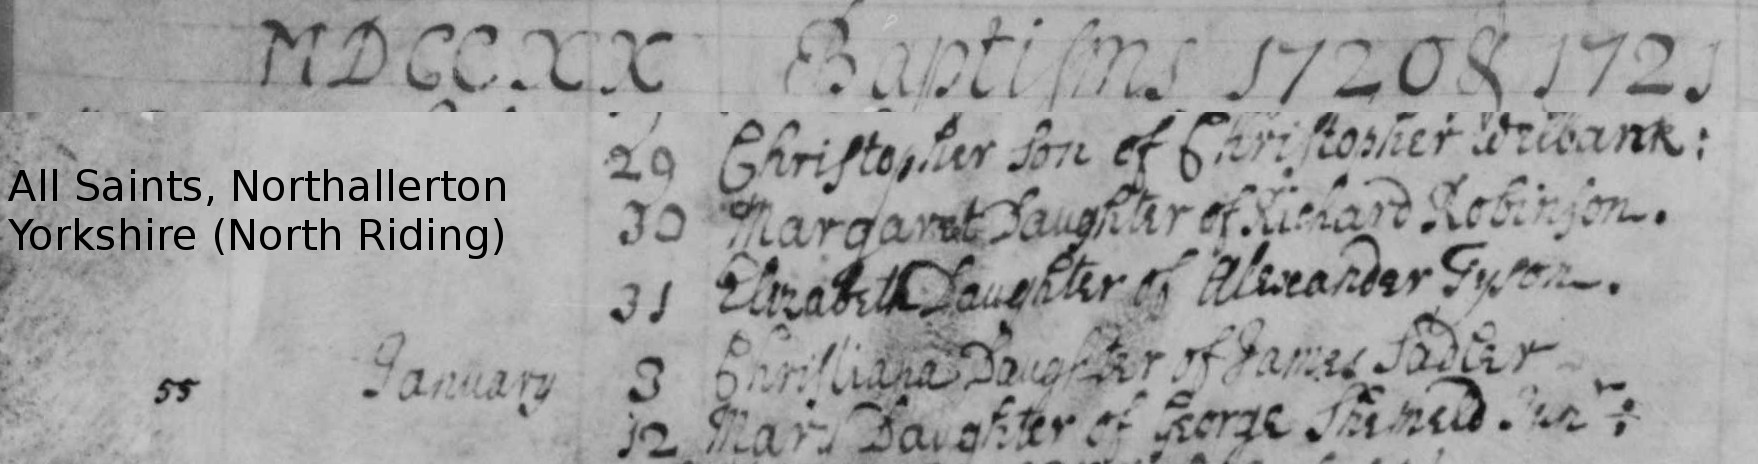 MDCCXX Baptisms 1720 & 1721
29 Christopher Son of Christopher Welbank:
All Saints, Northallerton
Yorkshire (North Riding)
30 Margaret Daughter of Richard Robinson.
31 Elizabeth Daughter of Alexander Tyson.
55 January 3 Christiana Daughter of James Sadler
12 Mary Daughter of George Shemeld Junr: